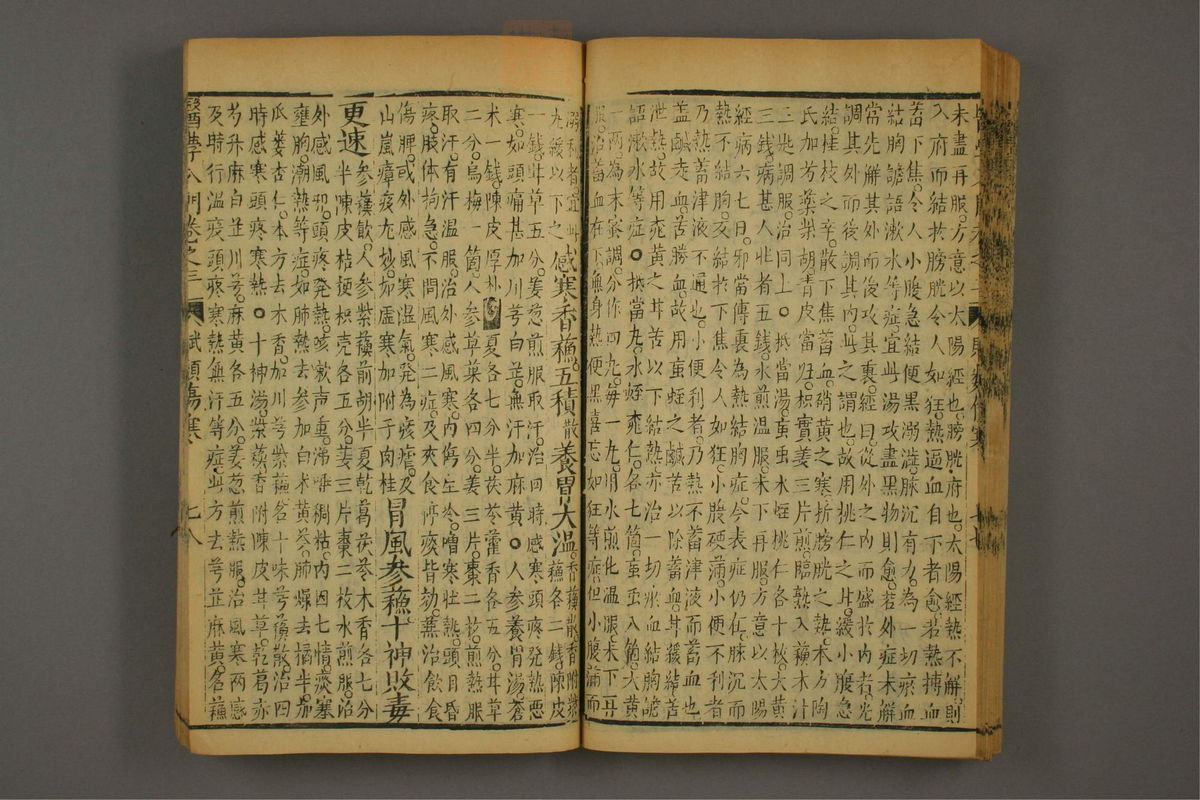 未盡再服方意以太陽經也膀胱府也太陽經熱不解則
入府而結於膀胱令人如狂熱逼血自下者愈若熱搏血
蓄下焦令人小腹急結便黑溺澁脉沉有力為一切瘀血
結胸譫語漱水等症宜此湯攻盡黑物則愈若外症未解
當先解其外而後攻其裏經曰從外之內而盛於內者先
調其外而後調其內此之謂也故用桃仁之甘緩小腹急
結桂枝之辛散下焦蓄血硝黃之寒折膀胱之熱本方陶
氏加芍藥柴胡青皮當歸枳實姜三片煎臨熱入蘇木汁
三匙調服治同上抵當湯䖟虫水蛭桃仁各十枚大黃
三錢病甚人壯者五錢水煎溫服未下再服方意以太陽
經病六七日邪當傳裏為熱結胸症今表症仍在脉沉而
熱不結胸反結於下焦令人如狂小腹硬滿小便不利者
乃熱蓄津液不通也小便利者乃熱不蓄津液而蓄血也
盖鹹走血苦勝血故用䖟蛭之鹹苦以除蓄血甘緩結苦
泄熱故用桃黃之甘苦以下結熱亦治一切瘀血結胸譫
語漱水等症○抵當丸水蛭桃仁各七箇䖟虫八箇大黃
一兩為末蜜調分作四丸每一丸用水煎化溫服未下再
服治蓄血在下無身熱便黑喜忘如狂等症但小腹滿而
感寒香蘇五積散養胃大溫香蘇散香附紫
九緩以下之蘇各二錢陳皮
一錢甘草五分姜葱煎服取汗治四時感寒頭疼發熱惡
寒如頭痛甚加川芎白芷無汗加麻黃○人參養胃湯蒼
术一錢陳皮厚朴半夏各七分半茯苓藿香各五分甘草
二分烏梅一箇人參草菓各四分姜三片棗二枚煎服
取汗有汗溫服治外感風寒內傷生冷憎寒壯熱頭目昏
疼肢体拘急不問風寒二症及夾食停痰皆効兼治飲食
傷脾或外感風寒濕氣發為痰瘧及
山嵐瘴疫尤妙如虛寒加附子肉桂冒風參蘇十神敗毒
更速參蘇飲人參紫蘇前胡半夏乾葛茯苓木香各七分
半陳皮桔梗枳壳各五分姜三片棗二枚水煎服治
外感風邪頭疼發熱咳嗽声重涕唾稠粘內因七情痰塞
壅胸潮熱等症如肺熱去參加白术黃芩肺燥去橘半加
瓜蔞杏仁本方去木香加川芎柴胡名十味芎蘇散治四
時感寒頭疼寒熱○十神湯紫蘇香附陳皮甘草乾葛赤
芍升麻白芷川芎麻黃各五分姜葱煎熱服治風寒兩感
及時行溫疫頭疼寒熱無汗等症此方去芎芷麻黃名蘇
醫學入門卷之三 賦類傷寒 七八